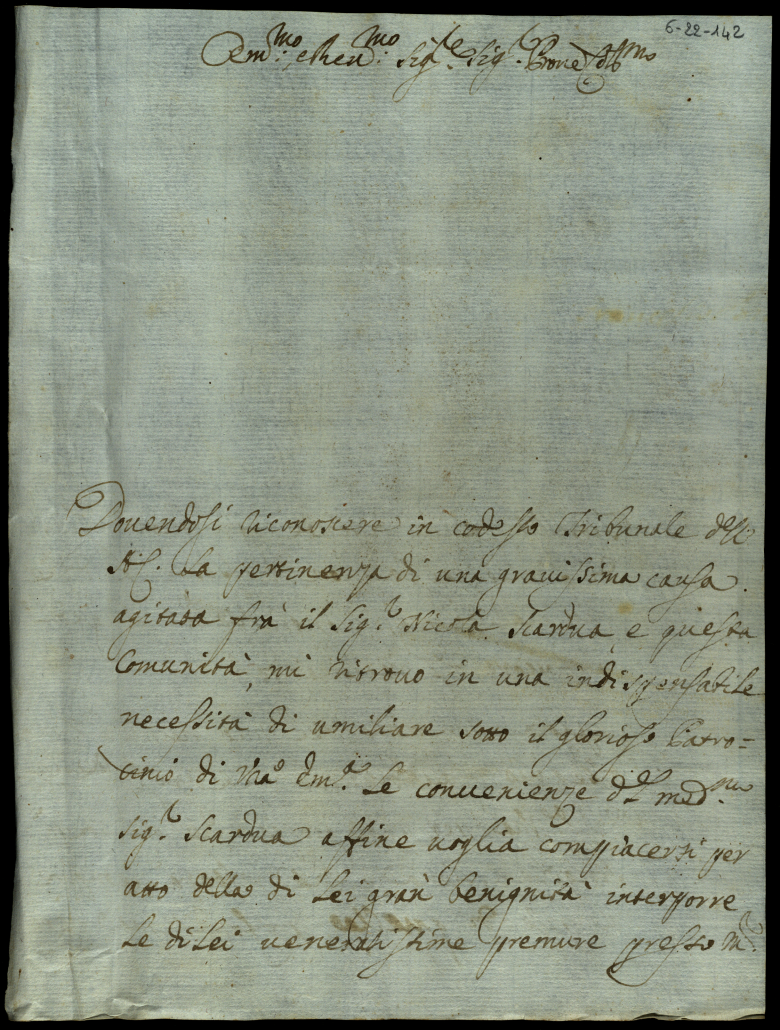 6-22-142
Em.mo e Reu.mo Sig.re Sig.r Prone Col.mo
Douendosi riconoscere in codesto Tribunale dell'
AC. La pertinenza di una grauissima causa
agitata frà il Sig.r Nicola Scardua, e questa
Comunità, mi ritrouo in una indispensabile
necessità di umiliare sotto il glorioso Patro=
cinio di Vra Em.a Le conuenienze d.el med.mo
Sig.r Scardua affine uoglia compiacersi per
atto della di Lei gran benignità interporre
Le di Lei ueneratissime premure presso M.